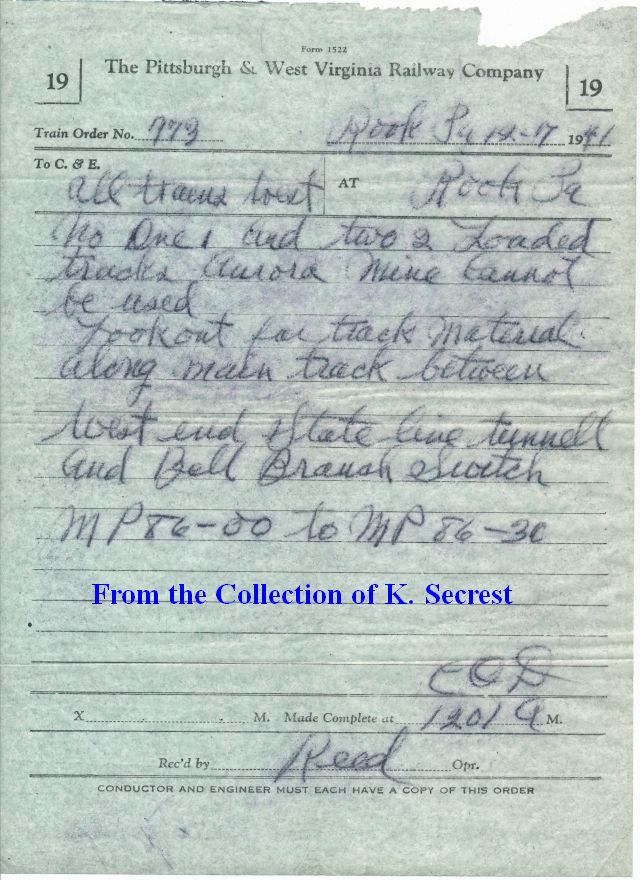 Form 1522
19 The Pittsburgh & West Virginia Railway Company 19
Train Order No. 773 Rook Pa 12-17 1941
To C. & E.
All trains West AT Rook Pa
No One 1 and two 2 Loaded
tracks Aurora Mine Cannot
be used
Lookout for track Material
along main track between
West end State line tunnell
and Bell Branch Switch
MP 86-00 to MP 86-30
From the Collection of K. Secrest
X M. Made Complete at 1201 A M.
Rec'd by Reed Opr.
CONDUCTOR AND ENGINEER MUST EACH HAVE A COPY OF THIS ORDER